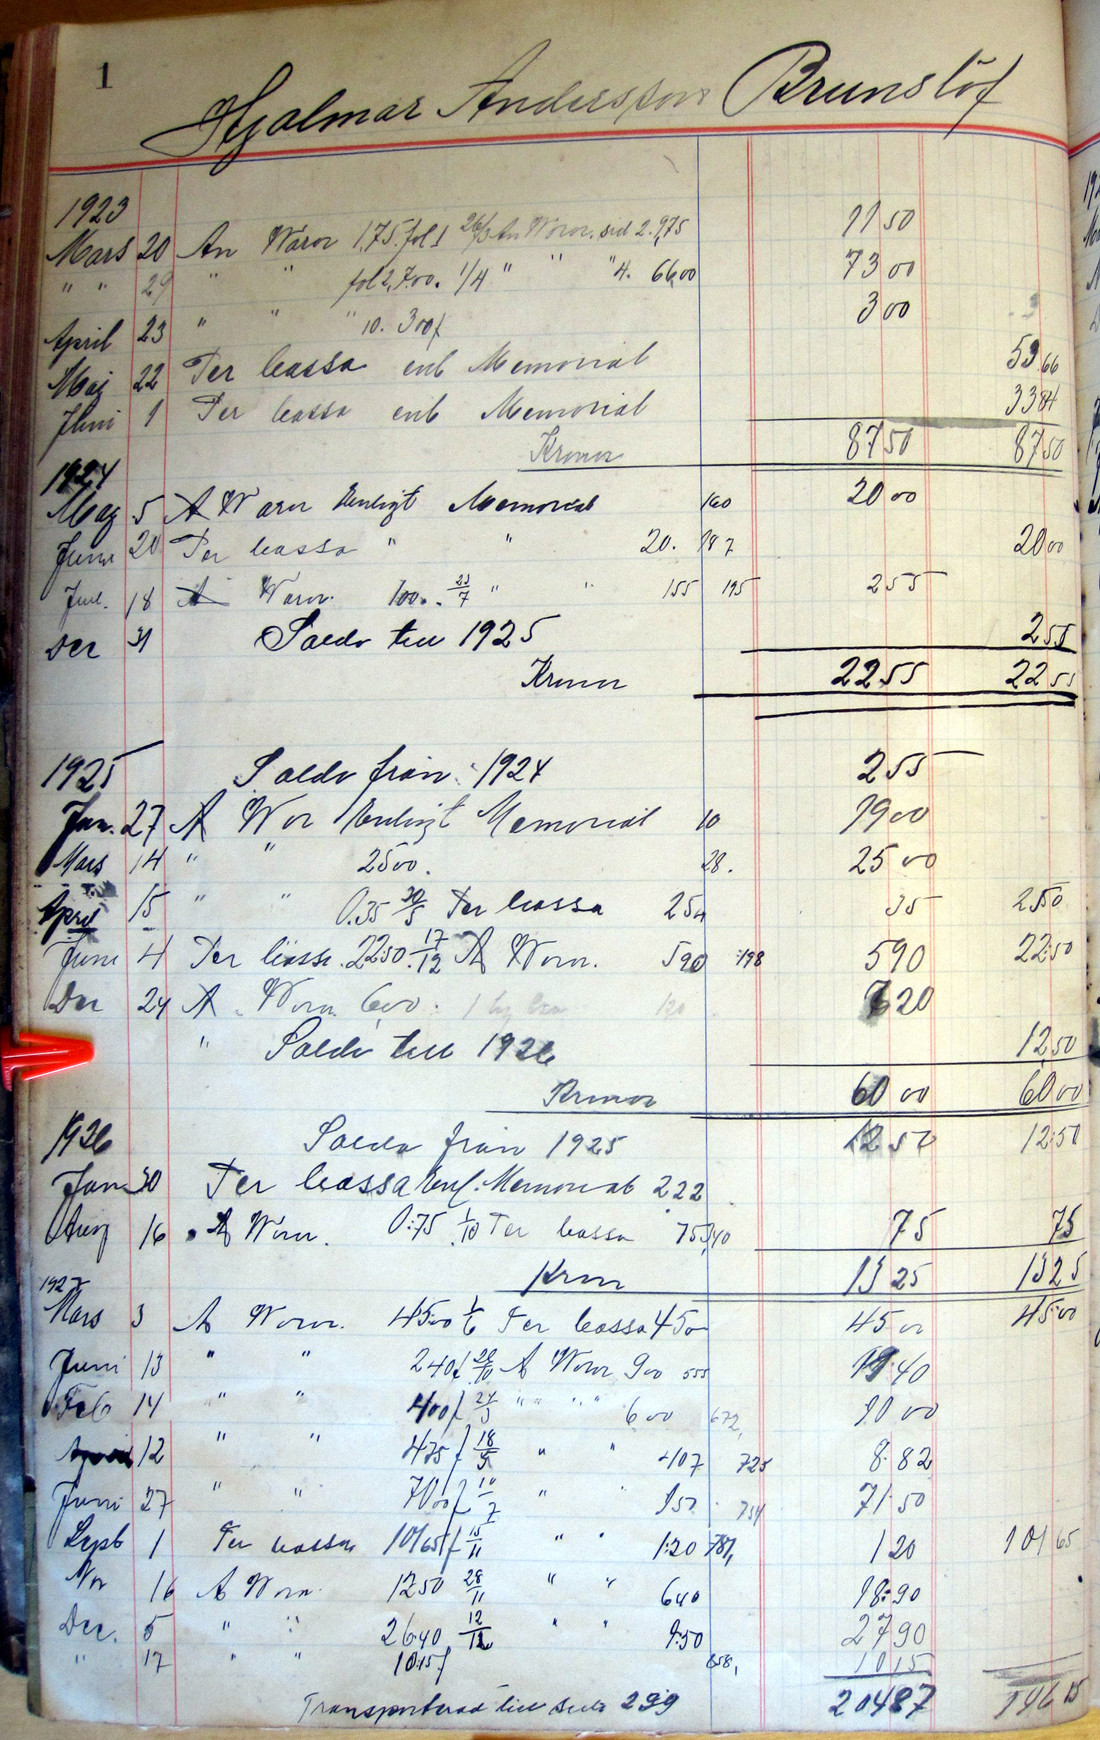 1
Hjalmar Andersson Brunslöf
1923
Mars 20 An Waror 1,75. fol 1 26/3 An Waror. sid 2. 9,75 11 50
" " 29 " " fol 2, 7.00. 1/4 " " " 4. 66,00 73 00
April 23 " " " 10. 300 3 00
Maj 22 Per Cassa enl Memorial 53 66
Juni 1 Per Cassa enl Memorial 33 84
Kronor 87 50 87 50
1924
Maj 5 A Waror Enligt Memorial 160 20 00
Juni 20 Per Cassa " " 20. 187 20 00
Jul. 18 A Waror. 100. 23/7 " " 155 195 2 55
Dec 31 Saldo till 1925 2 55
Kronor 22 55 22 55
1925 Saldo från 1924 2 55
Jan. 27 A Wor Enligt Memorial 10 19 00
Mars 14 " " 25 00. 28. 25 00
April 15 " " 0.35 30/5 Per Cassa 25 35 25 00
Juni 4 Per Cassa. 22 50 17/12 A Waror. 590 198 5 90 22 50
Dec 24 A Waror 6.00 120 7 20
" Saldo till 1926 12 50
Kronor 60 00 60 00
1926 Saldo från 1925 12 50 12 50
Jan 30 Per Cassa Enl. Memorial 222
Aug 16 A Waror. 0.75 1/10 Per Cassa 75 40 75 75
Kronor 13 25 13 25
1927
Mars 3 A Waror. 45 00 1/6 Per Cassa 45 00 45 00 45 00
Juni 13 " " 2 40 28/10 A Waror 9 00 555 11 40
Feb 14 " " 4 00 24/3 " " " " 6 00 672, 10 00
12 " " 4 75 18/5 " " 4 07 725 8.82
Juni 27 " " 70 00 10/7 " " 1 50 754 71.50
Sept 1 Per Cassa 101 65 15/11 " " 1.20 787, 1 20 101 65
Nov 16 A Waror 12 50 28/11 " " 6 40 18.90
Dec. 5 " " 26 40 12/12 " " 1.50 27 90
" 17 " " 10 15 858, 10 15
Transporterad till sida 299 204 87 146 65